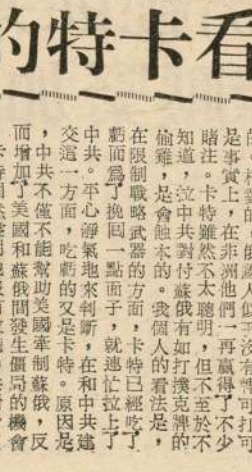 看卡特的
是事實上，在非洲他們一再贏得了不少
賭注。卡特雖然不太聰明，但不至於不
知道，拉中共對付蘇俄有如打撲克牌的
偷雞，是會蝕本的。我個人的看法是，
在限制戰略武器的方面，卡特已經吃了
虧而爲了挽回一點面子，就連忙拉上了
中共。平心靜氣地來判斷，在和中共建
交這一方面，吃虧的又是卡特。原因是
，中共不僅不能幫助美國牽制蘇俄，反
而增加了美國和蘇俄間發生僵局的機會